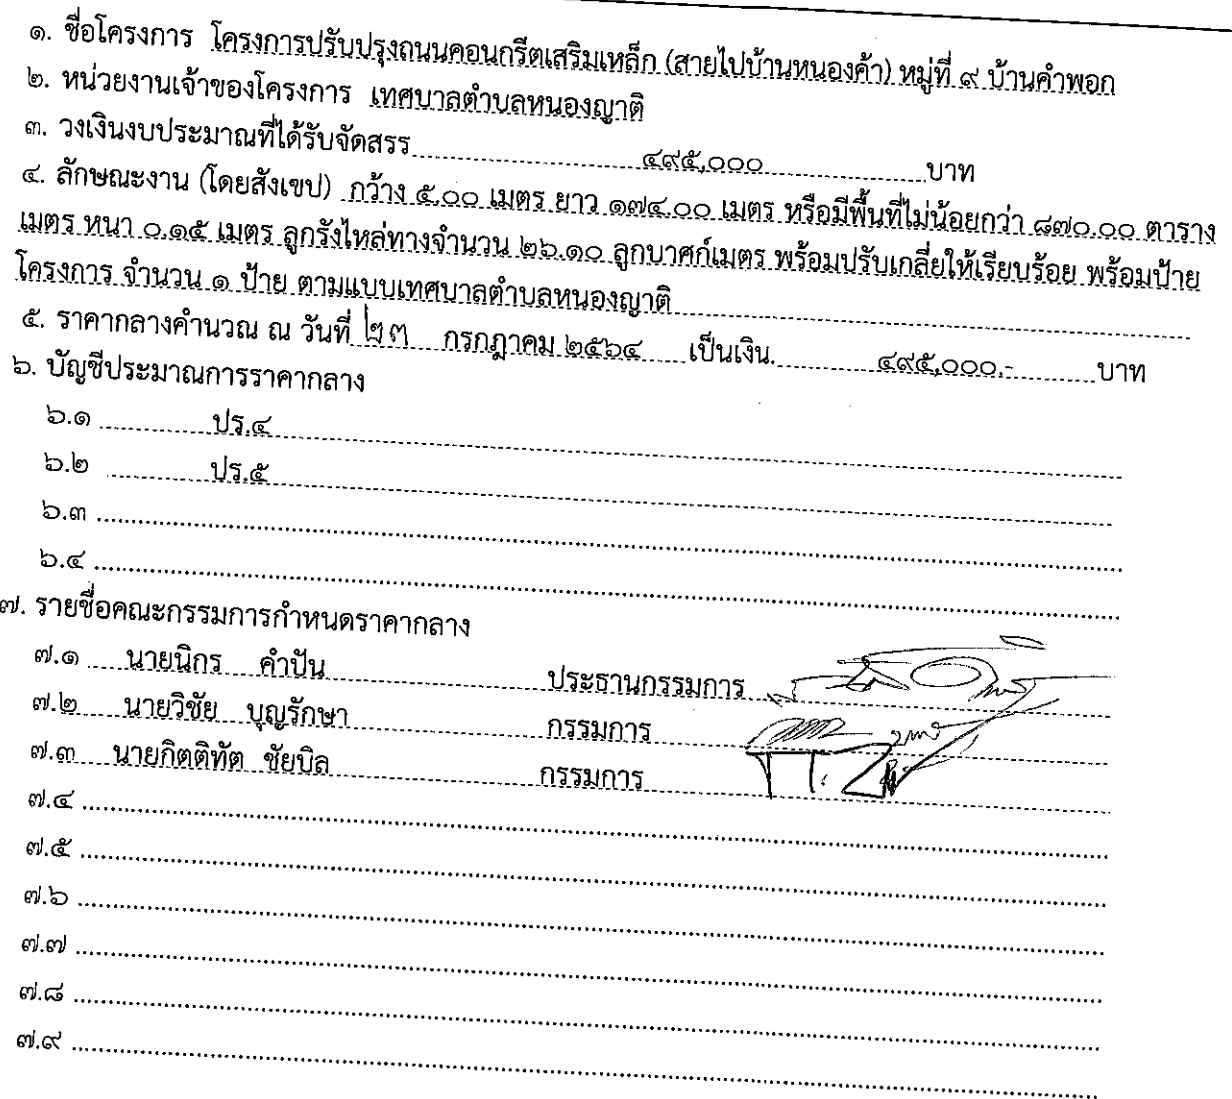 ๑. ชื่อโครงการ โครงการปรับปรุงถนนคอนกรีตเสริมเหล็ก (สายไปบ้านหนองค้า) หมู่ที่ ๙ บ้านคำพอก
๒. หน่วยงานเจ้าของโครงการ เทศบาลตำบลหนองญาติ
๓. วงเงินงบประมาณที่ได้รับจัดสรร ๔๙๕,๐๐๐ บาท
๔. ลักษณะงาน (โดยสังเขป) กว้าง ๕.๐๐ เมตร ยาว ๑๗๔.๐๐ เมตร หรือมีพื้นที่ไม่น้อยกว่า ๘๗๐.๐๐ ตาราง
เมตร หนา ๐.๑๕ เมตร ลูกรังไหล่ทางจำนวน ๒๖.๑๐ ลูกบาศก์เมตร พร้อมปรับเกลี่ยให้เรียบร้อย พร้อมป้าย
โครงการ จำนวน ๑ ป้าย ตามแบบเทศบาลตำบลหนองญาติ
๕. ราคากลางคำนวณ ณ วันที่ ๒๓ กรกฎาคม ๒๕๖๔ เป็นเงิน. ๔๙๕,๐๐๐.- บาท
๖. บัญชีประมาณการราคากลาง
๖.๑ ปร.๔
๖.๒ ปร.๕
๖.๓
๖.๔
๗. รายชื่อคณะกรรมการกำหนดราคากลาง
๗.๑ นายนิกร คำปัน ประธานกรรมการ
๗.๒ นายวิชัย บุญรักษา กรรมการ
๗.๓ นายกิตติทัต ชัยบิล กรรมการ
๗.๔
๗.๕
๗.๖
๗.๗
๗.๘
๗.๙